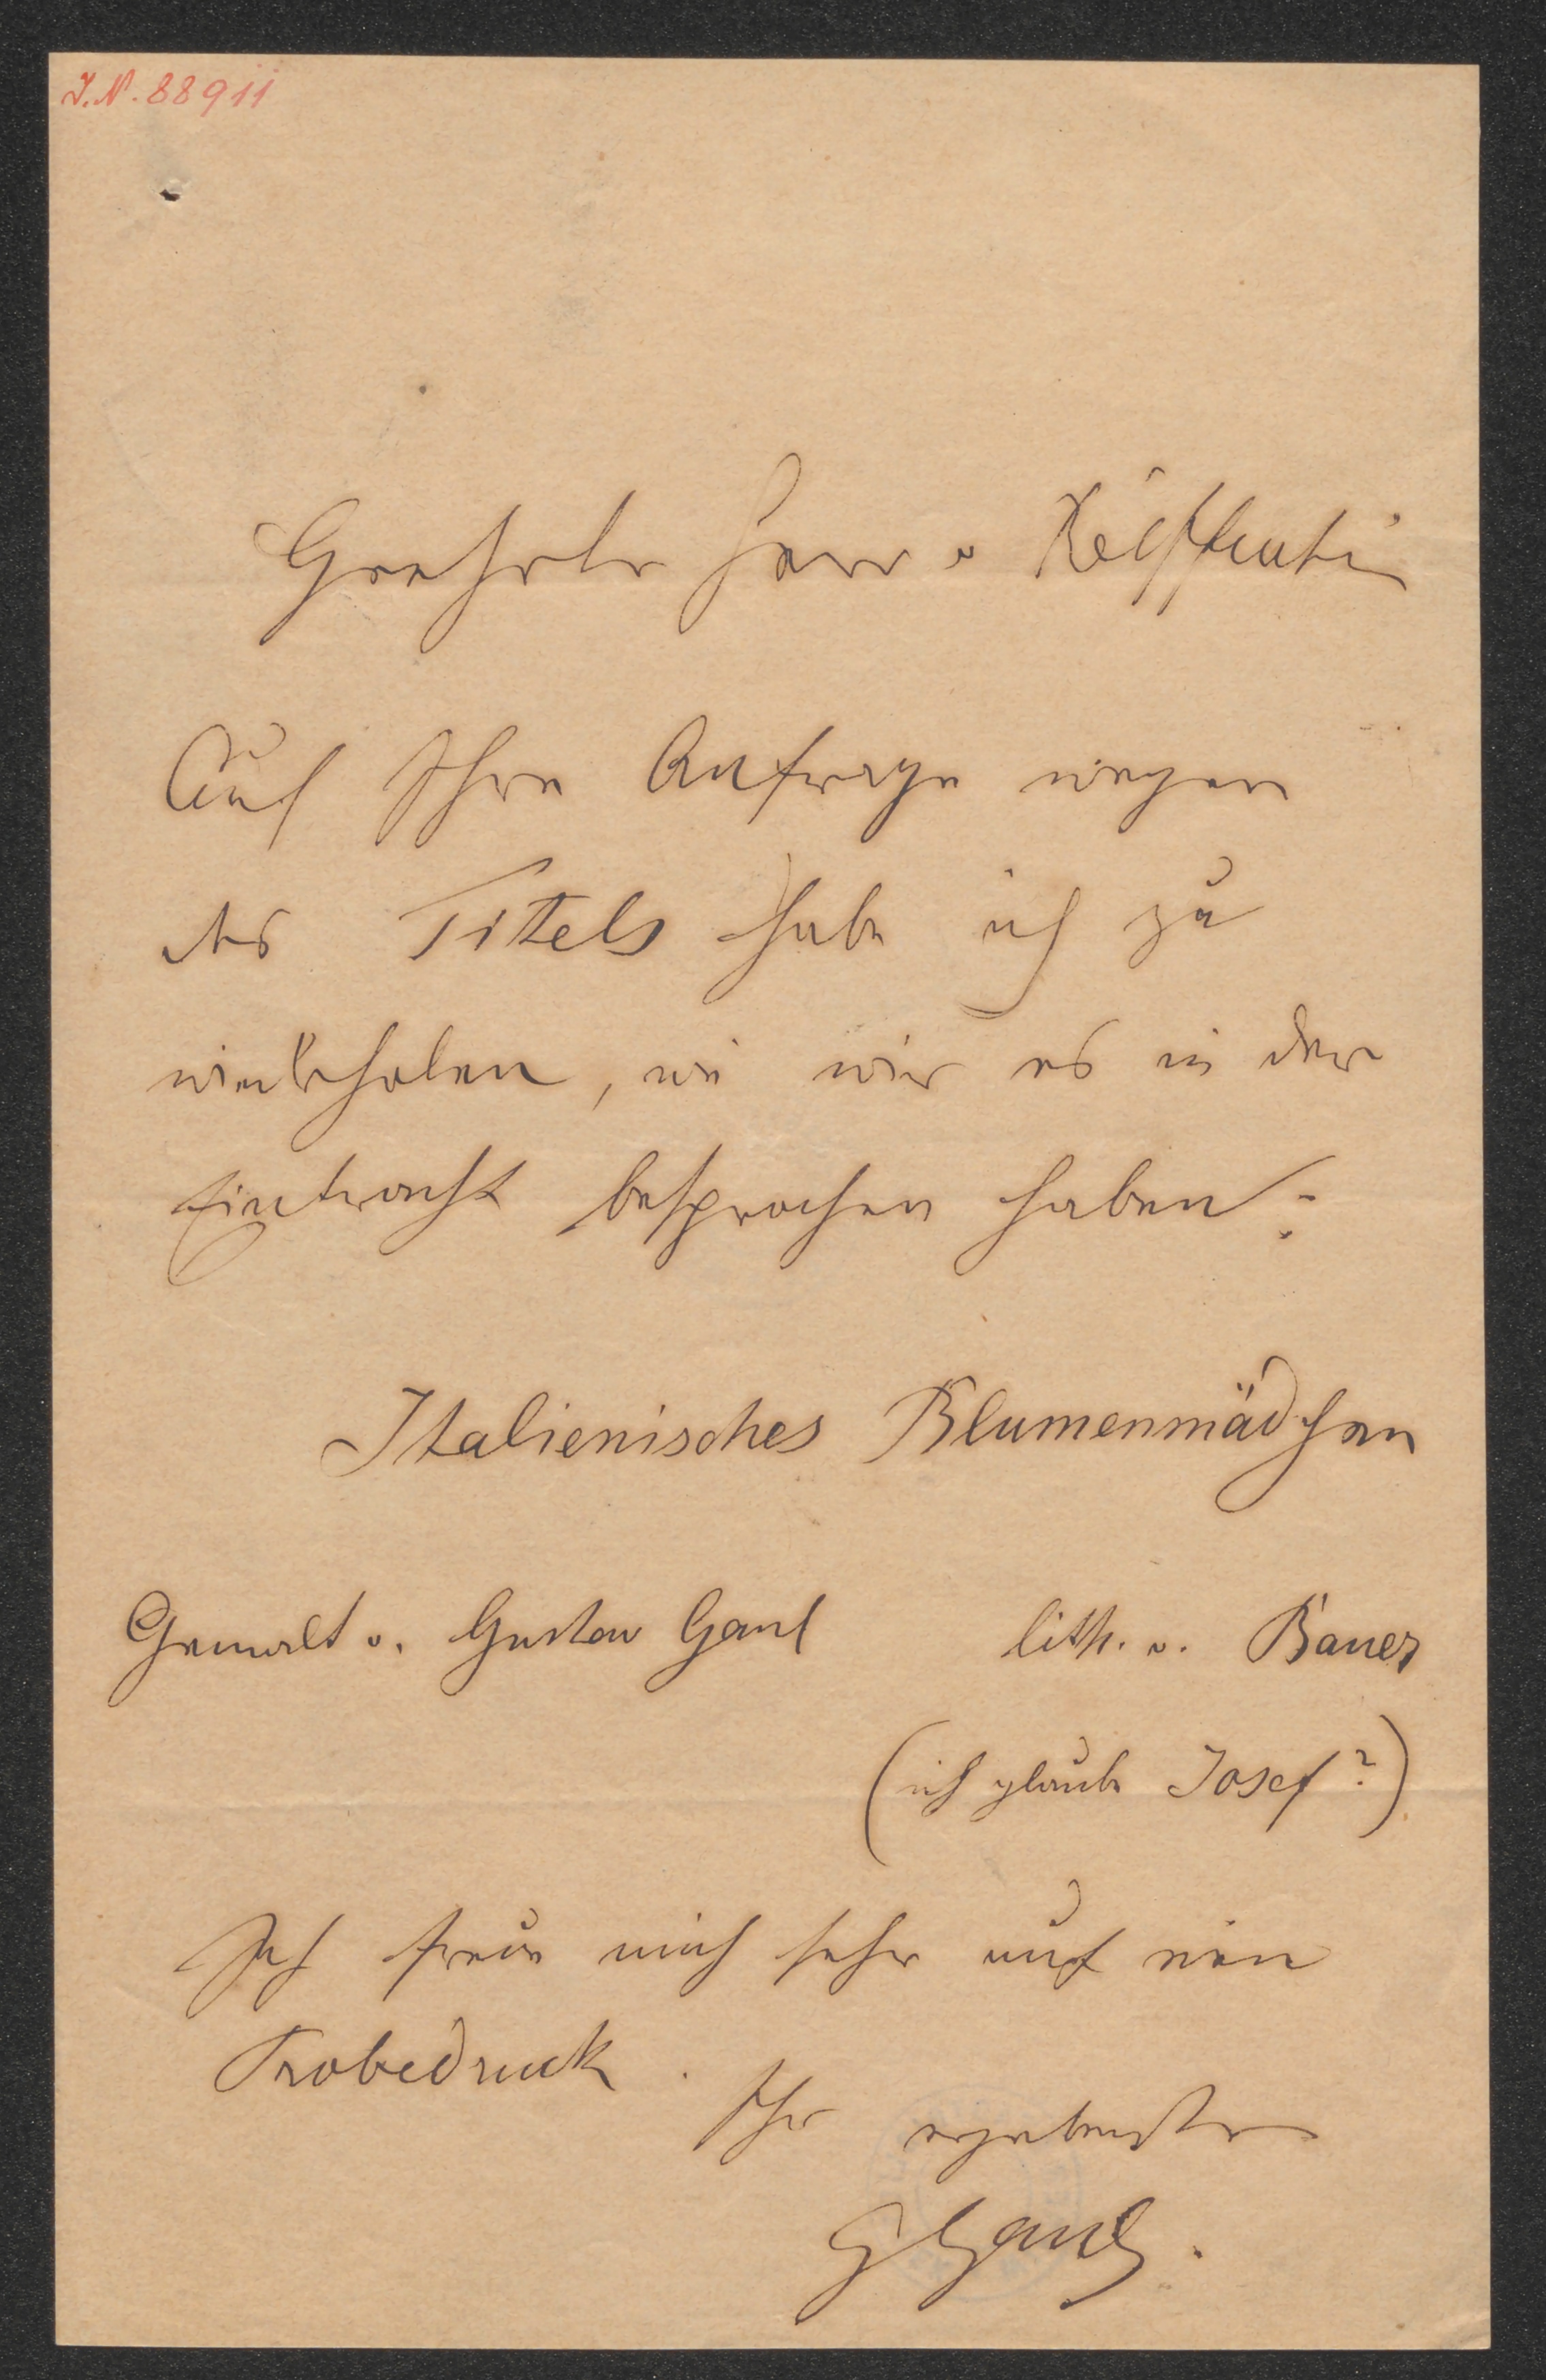 I.N. 88911
Geehrter Herr v
Auf Ihre Anfrage wegen
des Titels habe ich zu
wiederholen, wie wir es in der
Eintracht besprochen haben:
Italienisches Blumenmädchen
Gemalt v. Gustav Gaul lith. v. Bauer
(ich glaube Josef?)
Ich freue mich sehr auf einen
Probedruck.
Ihr ergebenster
GGaul.